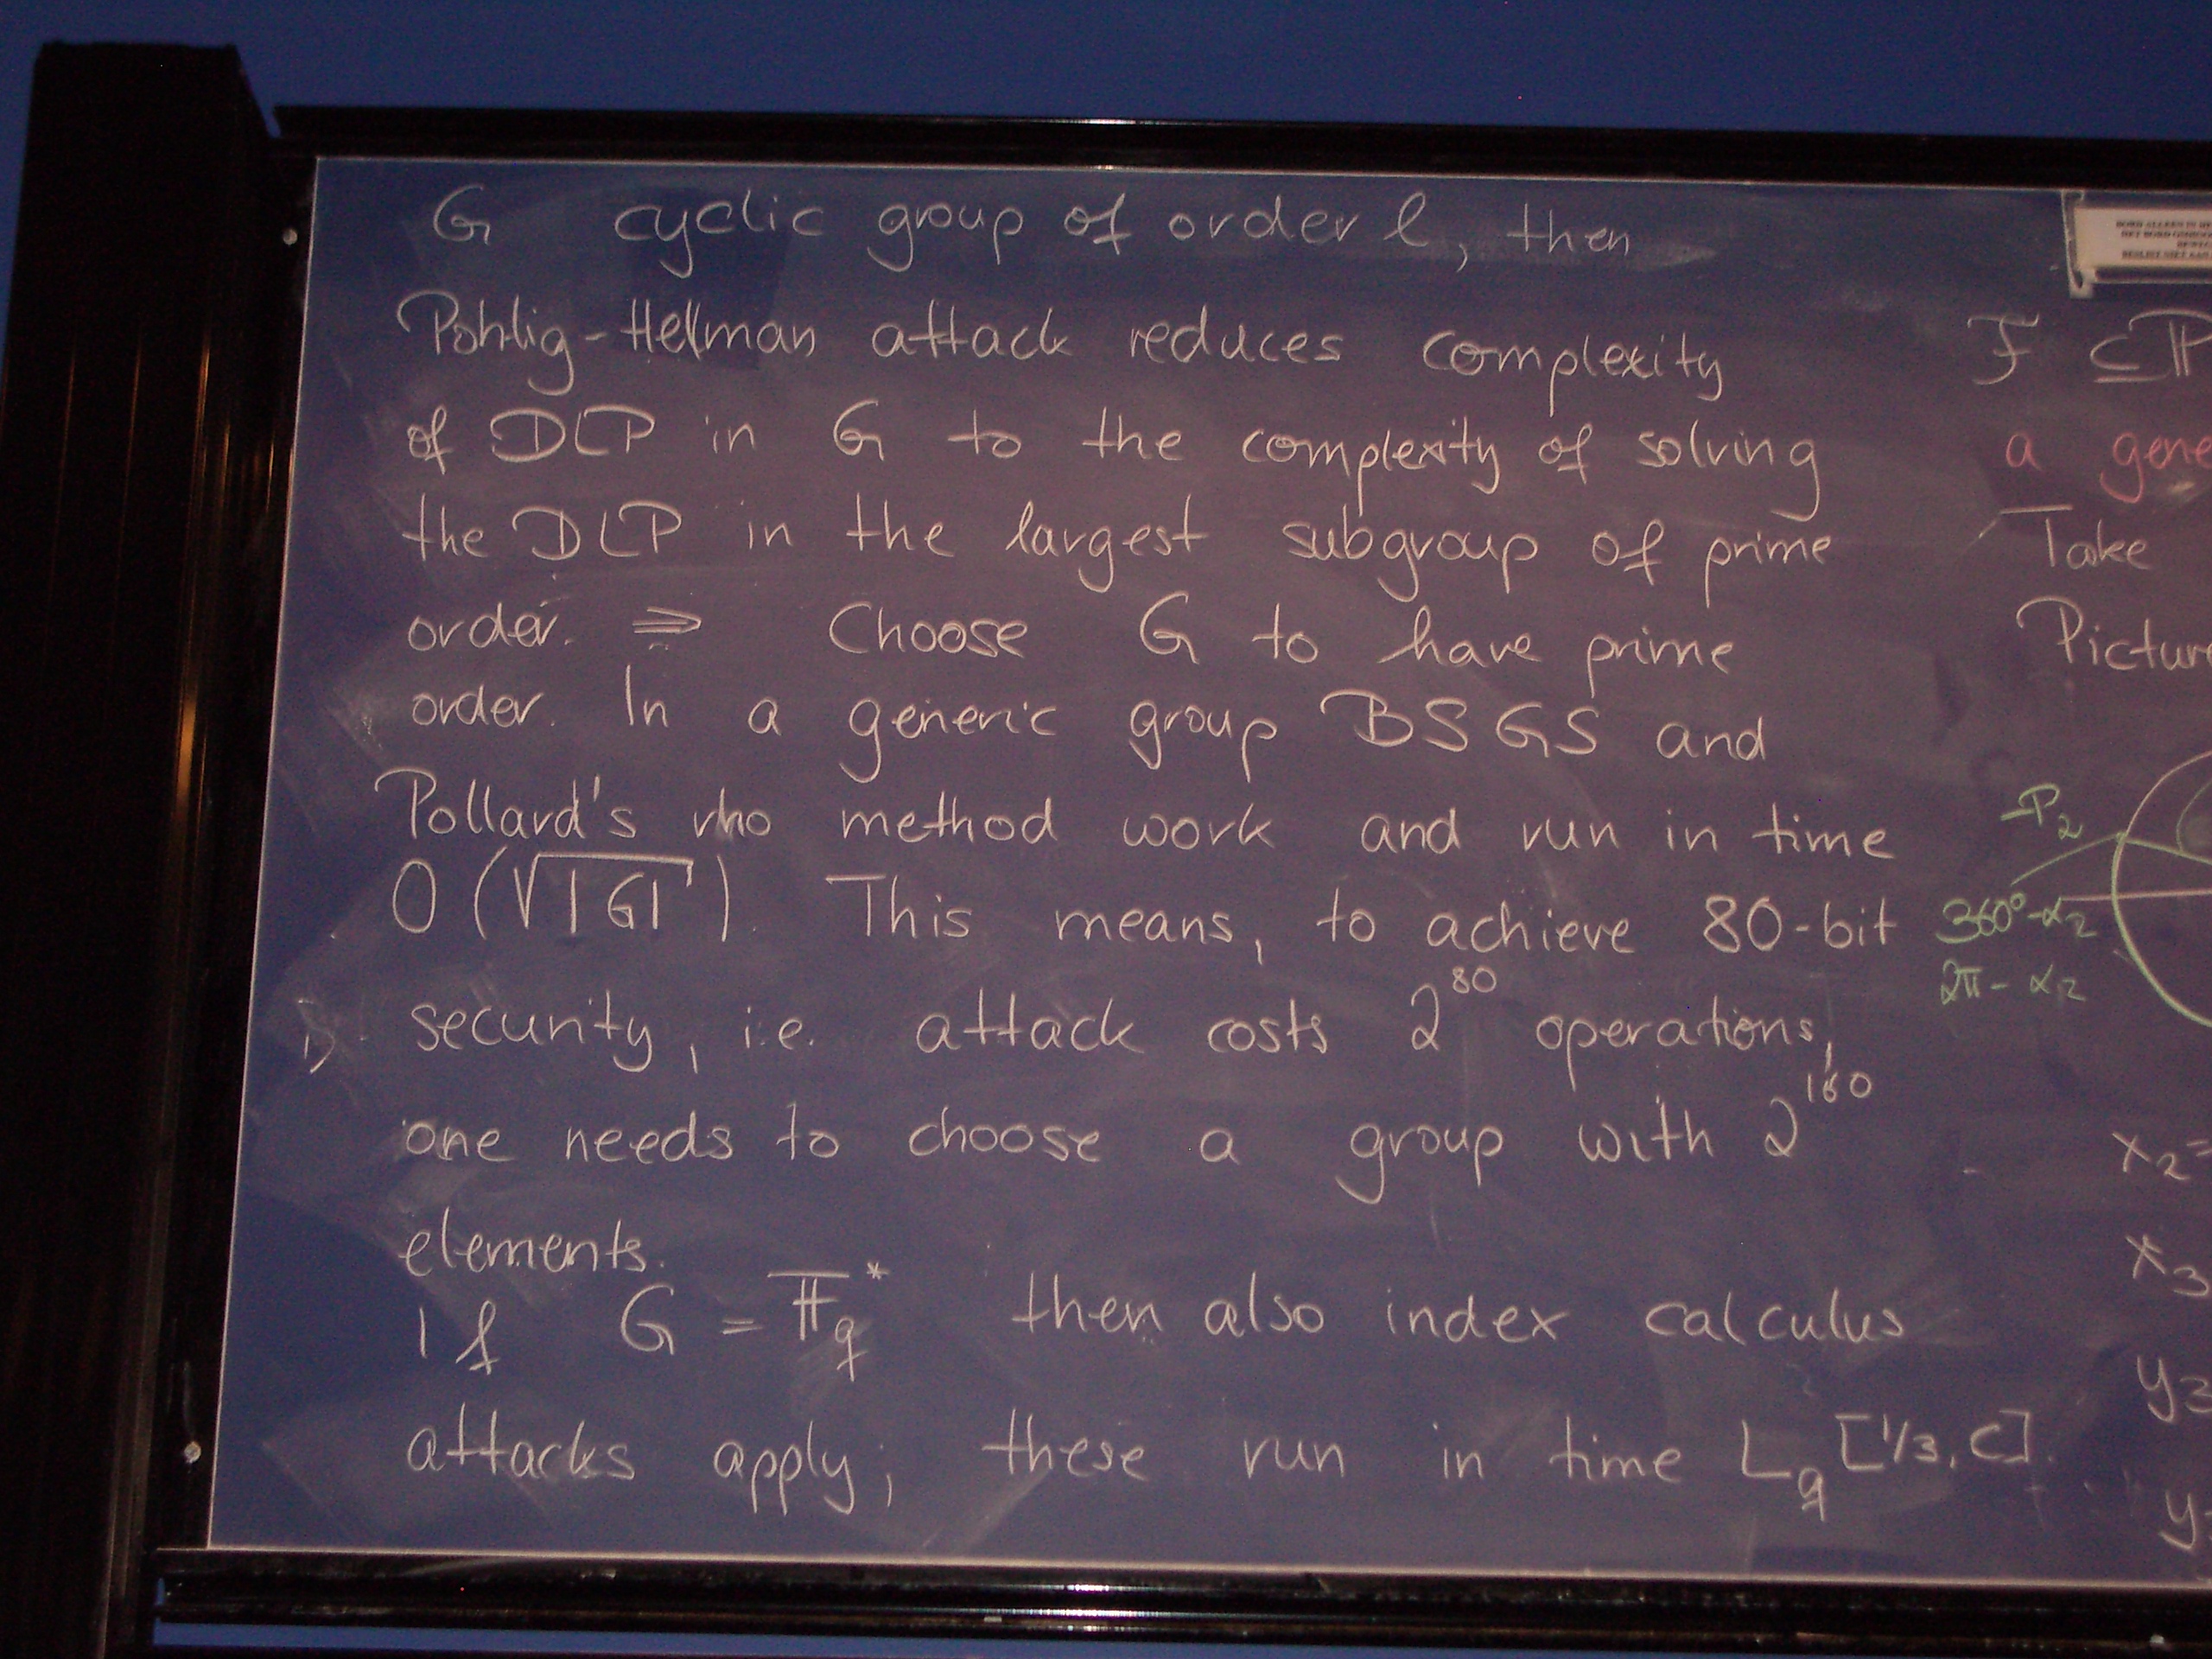 G cyclic group of order l, then
Pohlig-Hellman attack reduces complexity
of DLP in G to the complexity of solving
the DLP in the largest subgroup of prime
order. ⇒ Choose G to have prime
order. In a generic group BSGS and
Pollard's rho method work and run in time
O(√|G|). This means, to achieve 80-bit
security, i.e. attack costs 2^80 operations,
one needs to choose a group with 2^160
elements.
If G = 𝔽_q^* then also index calculus
attacks apply; these run in time L_q [1/3, c].
F ⊆ P
a gene
Take
Picture
-P_2
360°-α_2
2π-α_2
x_2 =
x_3
y_3
y